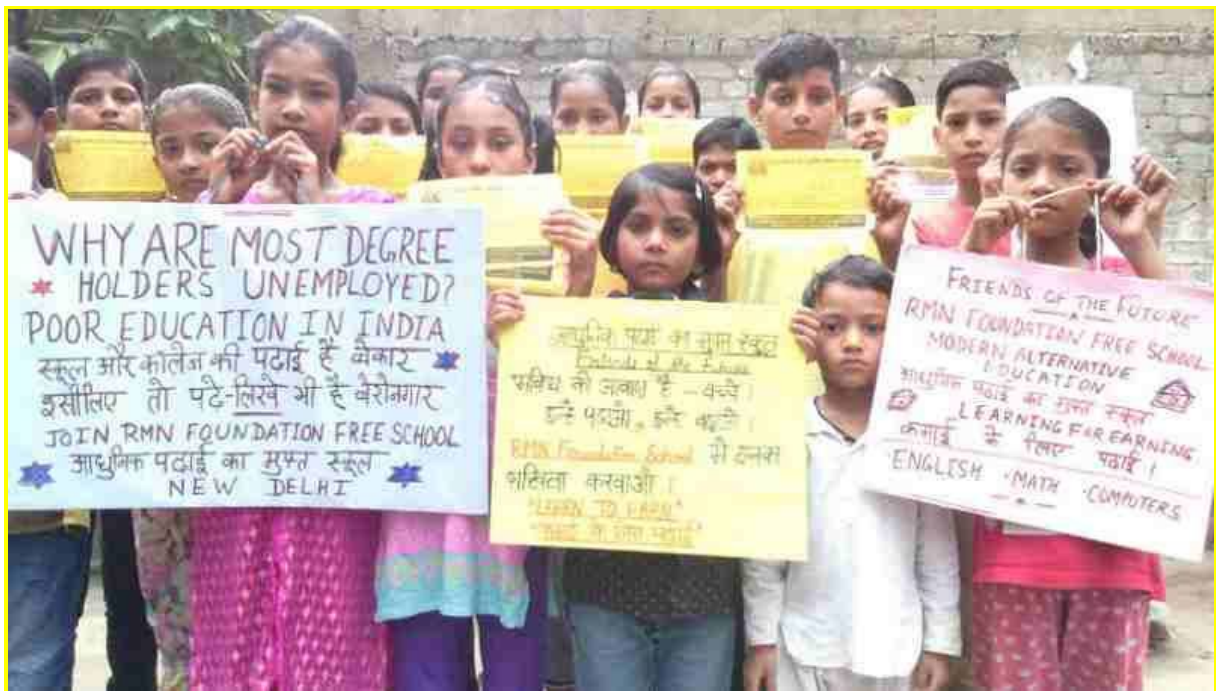 WHY ARE MOST DEGREE
HOLDERS UNEMPLOYED?
POOR EDUCATION IN INDIA
स्कूल और कॉलेज की पढाई है बेकार
इसीलिए तो पढे-लिखे भी है बेरोजगार
JOIN RMN FOUNDATION FREE SCHOOL
आधुनिक पढाई का मुफ्त स्कूल
NEW DELHI
आधुनिक पढाई का मुफ्त स्कूल
Friends of the Future
भविष्य की आवाज है - बच्चे।
इन्हें पढाओ, इन्हें बढाओ।
RMN Foundation School में इनका
दाखिला करवाओ।
"LEARN TO EARN"
"कमाई के लिए पढाई"
FRIENDS OF THE FUTURE
RMN FOUNDATION FREE SCHOOL
MODERN ALTERNATIVE
EDUCATION
आधुनिक पढाई का मुफ्त स्कूल
LEARNING FOR EARNING
कमाई के लिए पढाई।
ENGLISH · MATH · COMPUTERS